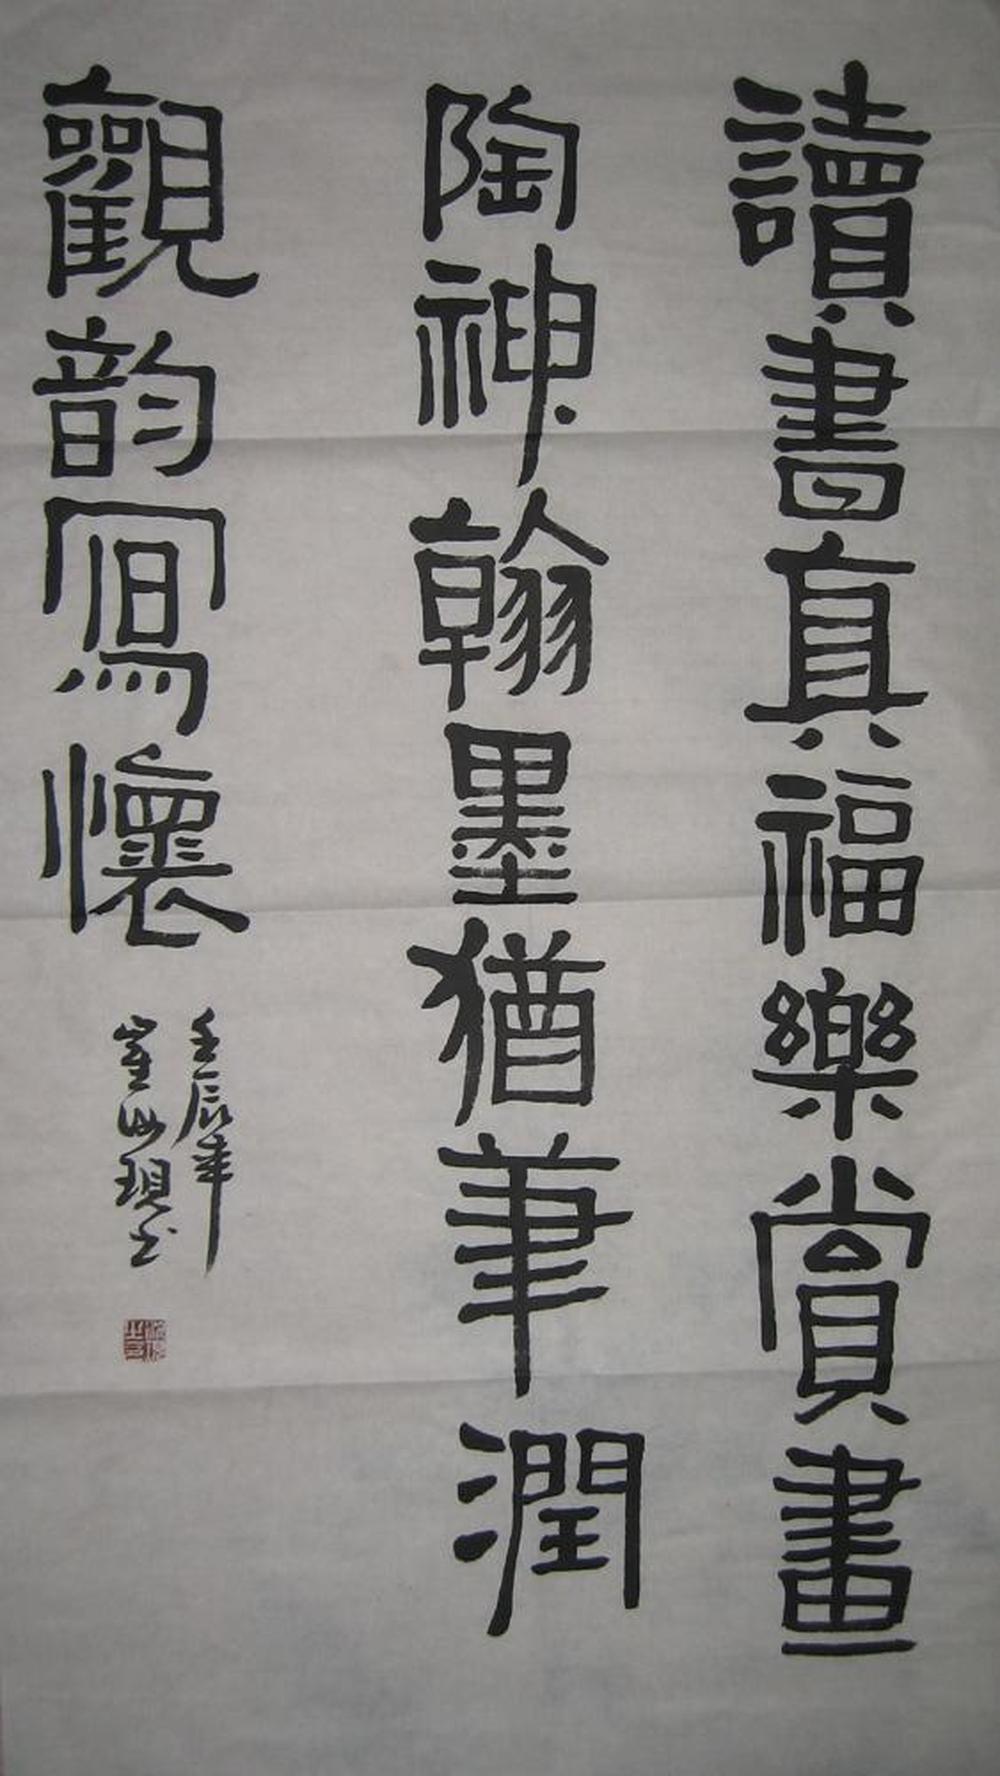 讀書真福樂賞畫
陶神翰墨猶筆潤
觀韵寫懷
壬辰年
崔海現书